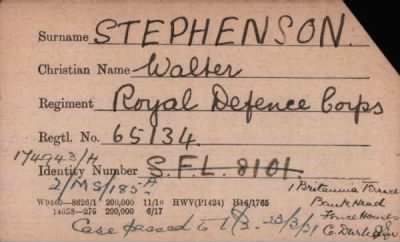 Surname STEPHENSON.
Christian Name Walter
Regiment Royal Defence Corps
Regtl. No. 65134.
174943/H
Identity Number S.F.L. 8101.
2/MS/185-A
W9460—8626/1 200,000 11/16 HWV(P1424) H16/1765
14058—276 200,000 6/17
1 Britannia Terrace
Bank Head
Fence Houses
Co. Durham
Case passed to 23/3/31